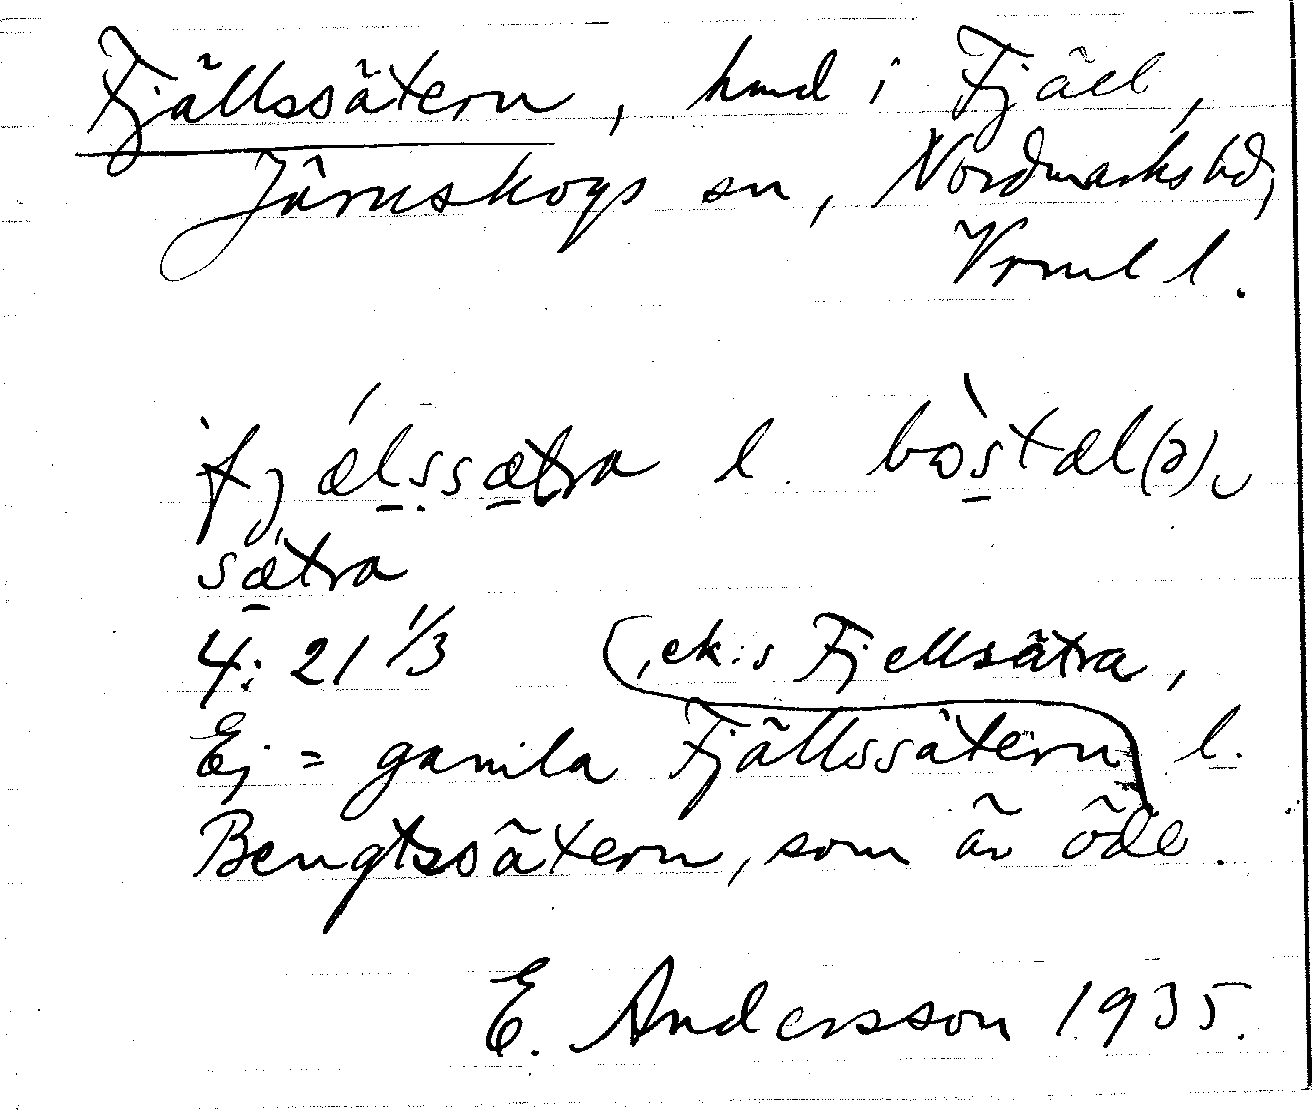 Fjällssätern, hmd i Fjäll,
Järnskogs sn, Nordmarks hd,
Vrml l.
fjælssætra l. bòstæl(ə)
sætra
4:21 1/3 (, ek:s Fjellsätra,
Ej = gamla Fjällssätern) l.
Bengtssätern, som är öde.
E. Andersson 1935.